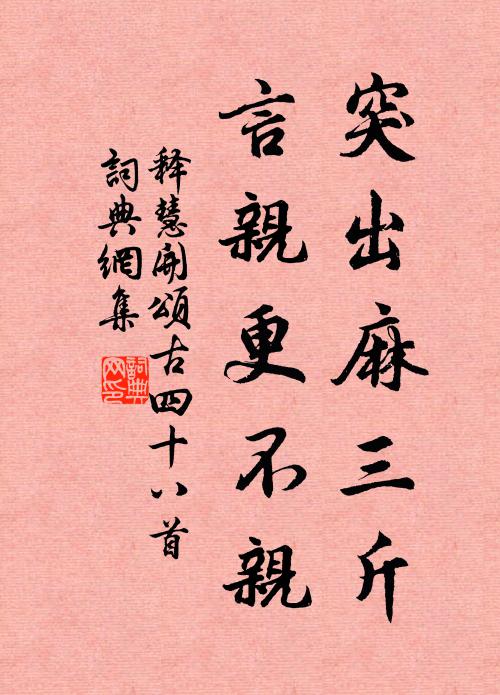 突出麻三斤
言親更不親
释慧開頌古四十八首
詞典網集
詞典网印